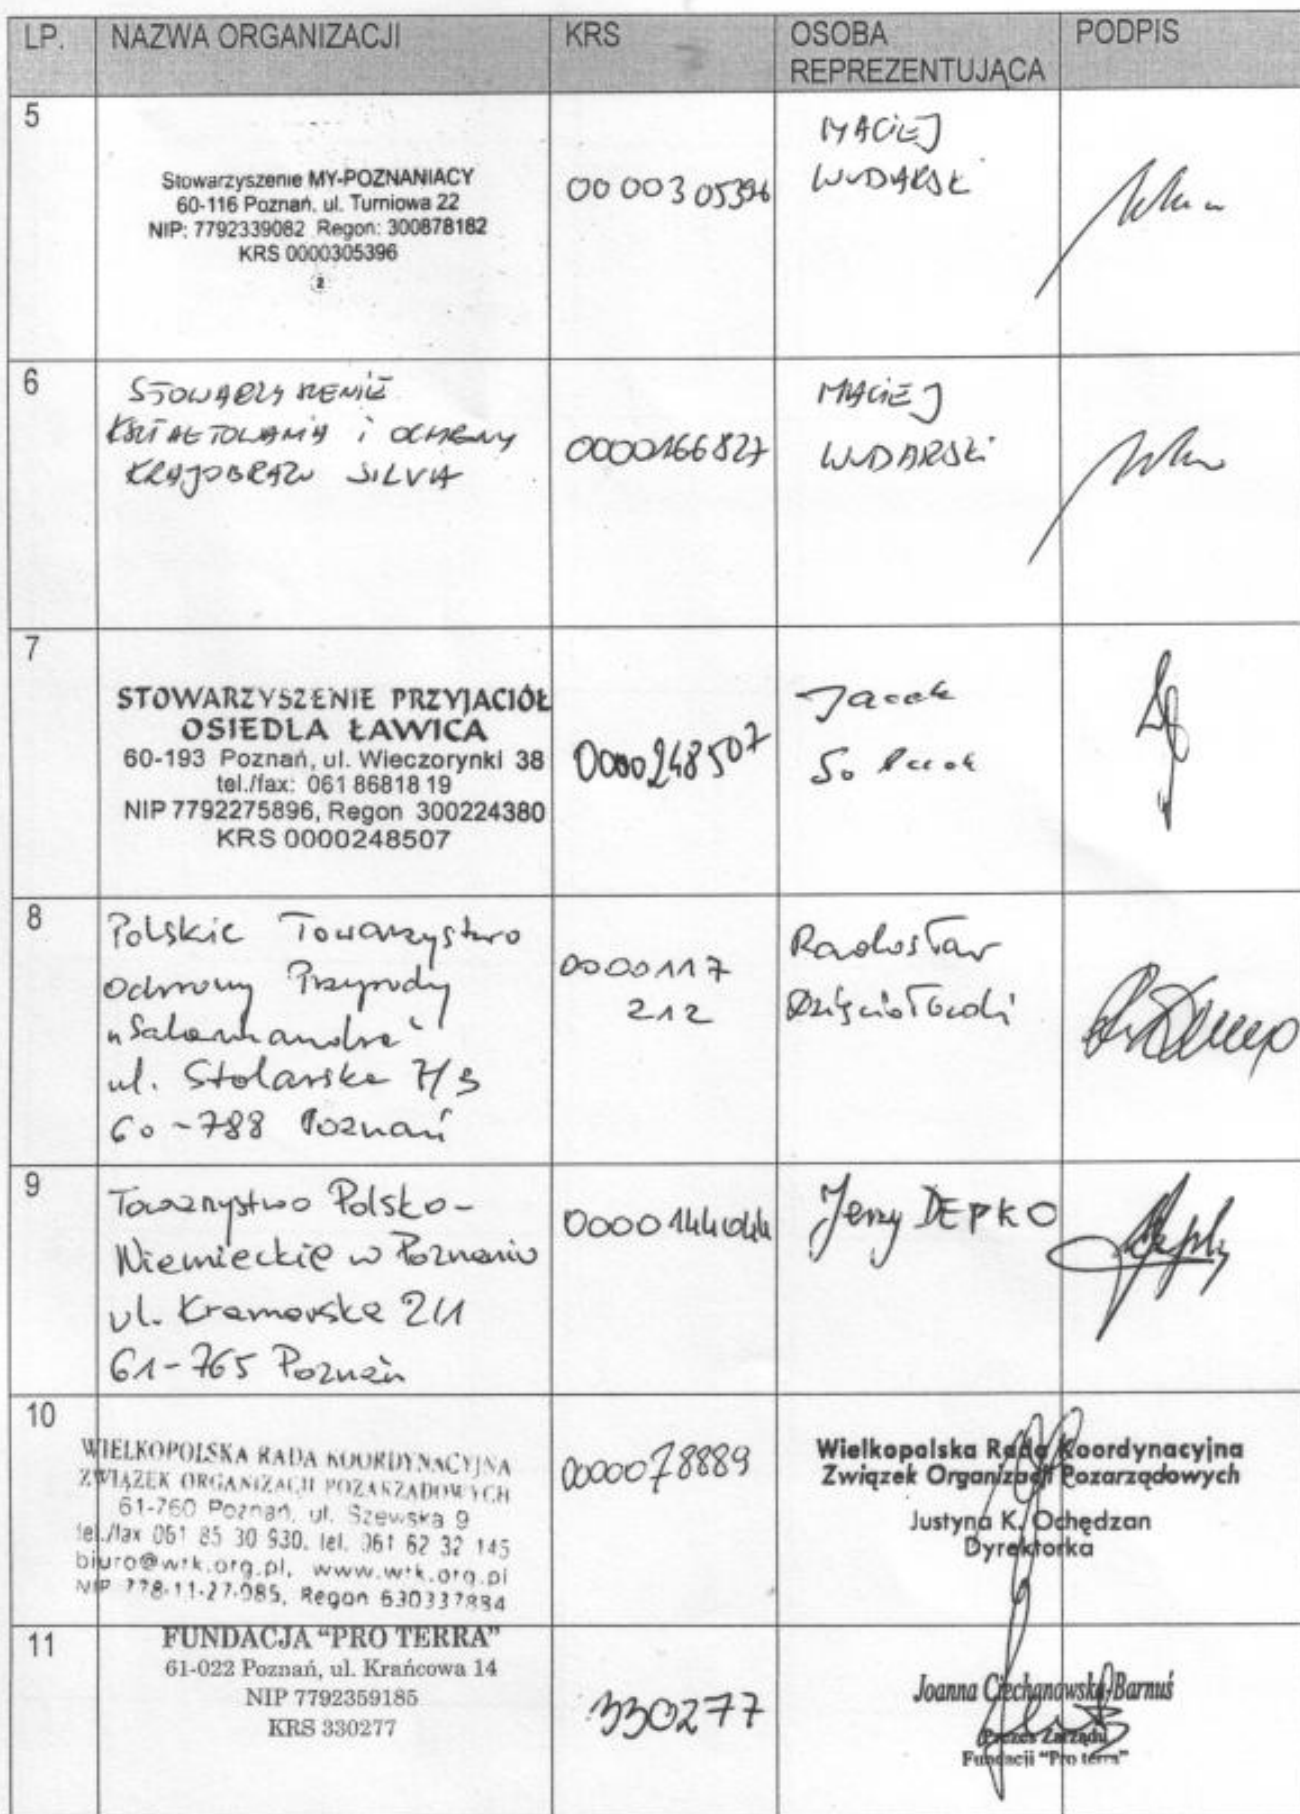 LP. NAZWA ORGANIZACJI KRS OSOBA REPREZENTUJĄCA PODPIS
5
Stowarzyszenie MY-POZNANIACY
60-116 Poznań, ul. Turniowa 22
NIP: 7792339082 Regon: 300878182
KRS 0000305396
2
0000305396
MACIEJ
WUDARSKI
6
STOWARZYSZENIE
KSZTAŁTOWANIA i OCHRONY
KRAJOBRAZU SILVA
0000166827
MACIEJ
WUDARSKI
7
STOWARZYSZENIE PRZYJACIÓŁ
OSIEDLA ŁAWICA
60-193 Poznań, ul. Wieczorynki 38
tel./fax: 061 86818 19
NIP 7792275896, Regon 300224380
KRS 0000248507
0000248507
Jacek
8
Polskie Towarzystwo
Ochrony Przyrody
"Salamandra"
ul. Stolarska 7/3
60-788 Poznań
0000117
212
Radosław
Dzięciołowski
9
Towarzystwo Polsko-
Niemieckie w Poznaniu
ul. Kramarska 2/1
61-765 Poznań
0000144044
Jerzy DEPKO
10
WIELKOPOLSKA RADA KOORDYNACYJNA
ZWIĄZEK ORGANIZACJI POZARZĄDOWYCH
61-760 Poznań, ul. Szewska 9
tel./fax 061 85 30 930, tel. 061 62 32 145
biuro@wrk.org.pl, www.wrk.org.pl
NIP 778-11-27-085, Regon 630337884
0000078889
Wielkopolska Rada Koordynacyjna
Związek Organizacji Pozarządowych
Justyna K. Ochędzan
Dyrektorka
11
FUNDACJA "PRO TERRA"
61-022 Poznań, ul. Krańcowa 14
NIP 7792359185
KRS 330277
330277
Joanna Ciechanowska-Barnuś
Prezes Zarządu
Fundacji "Pro terra"